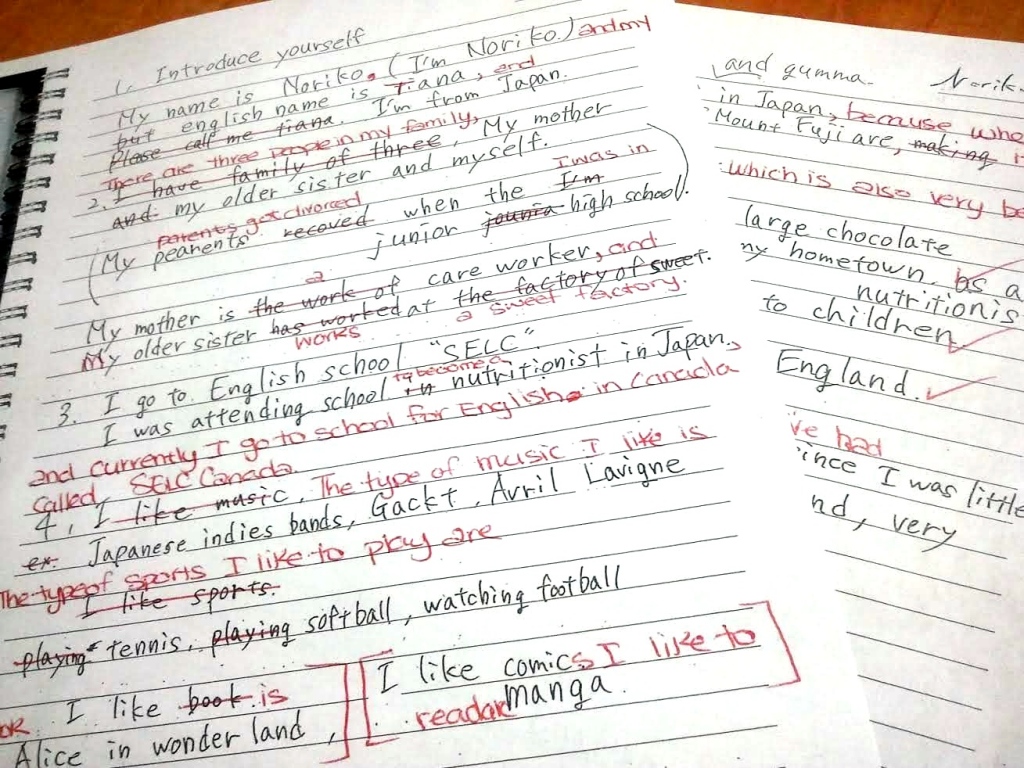 1. Introduce yourself
My name is Noriko. (I'm Noriko.) and my
but english name is Tiana, and
Please call me tiana. I'm from Japan.
There are three people in my family,
2. I have family of three, My mother
and my older sister and myself.
parents got divorced I was in
(My peanents recoved when the I'm
junior jounia high school).
a
My mother is the work of care worker, and
My older sister has worked at the factory of sweet.
works a sweet factory.
3. I go to English school "SELC".
to become a
I was attending school in nutritionist in Japan,
and currently I go to school for English in Canada
called, SELC Canada.
4, I like music, The type of music I like is
ex. Japanese indies bands, Gackt, Avril Lavigne
The type of sports I like to play are
I like sports.
playing tennis, playing softball, watching football
OR I like book is
Alice in wonder land,
I like comics I like to
read manga.
and gumma. Norik
in Japan, because whe
Mount Fuji are, making
which is also very be
large chocolate
ny hometown, as a
nutritionis
to children
England.
've had
ince I was little
nd, very